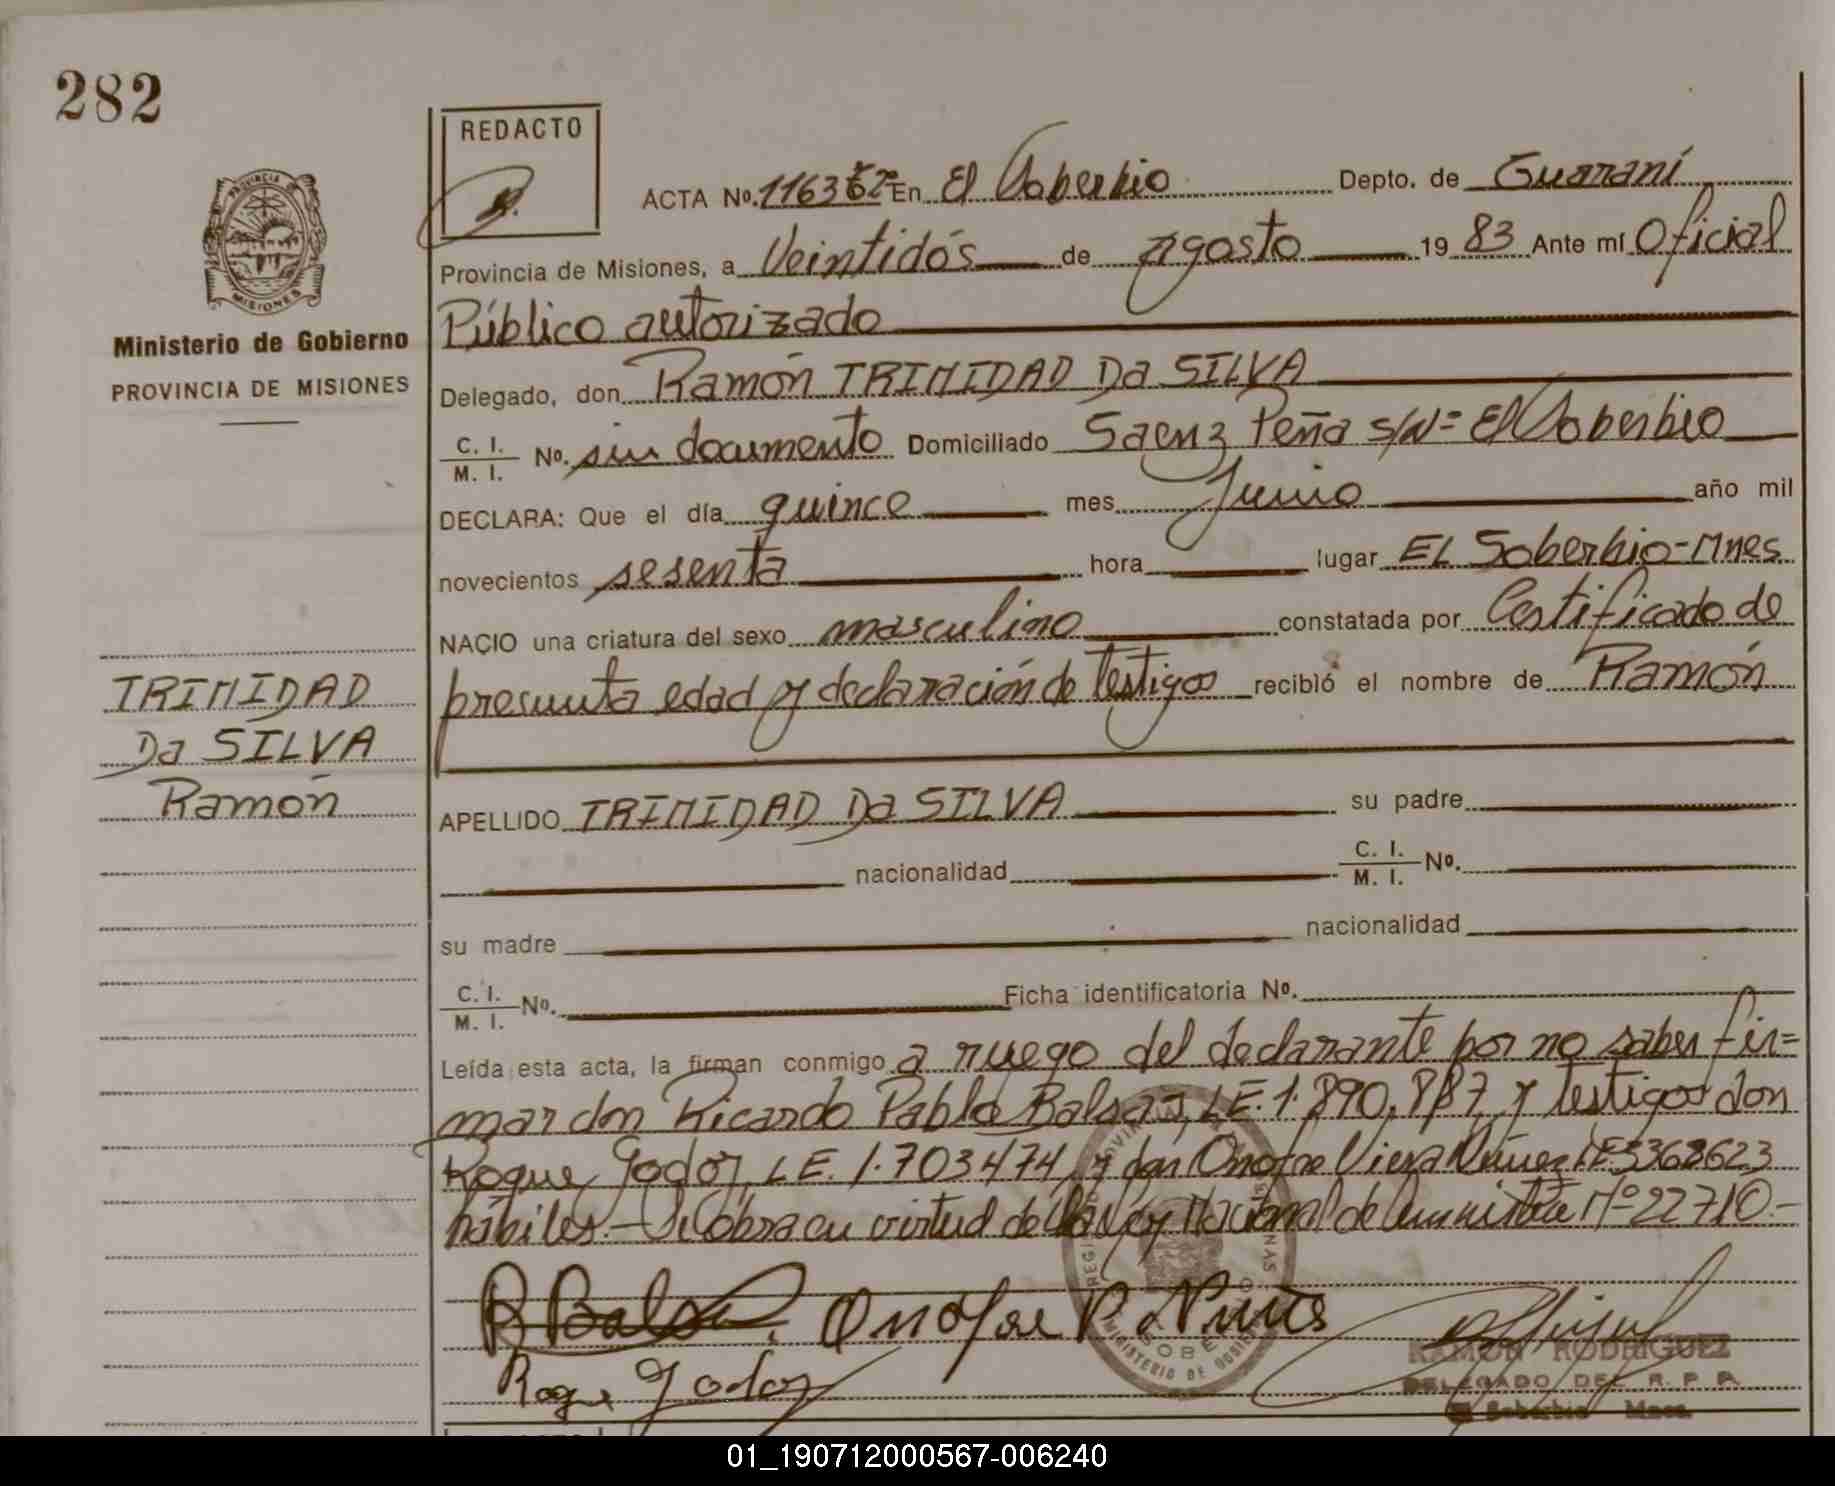 282
REDACTO
ACTA No. En El Soberbio Depto. de Guaraní
PROVINCIA DE MISIONES
Provincia de Misiones, a Veintidós de Agosto 19 83 Ante mí Oficial
Público autorizado
Ministerio de Gobierno
PROVINCIA DE MISIONES
Delegado, don Ramón TRINIDAD Da SILVA
C. I. / M. I. No. sin documento Domiciliado Saenz Peña s/Nº El Soberbio
DECLARA: Que el día quince mes Junio año mil
novecientos sesenta hora lugar EL Soberbio-Mnes
NACIO una criatura del sexo masculino constatada por Certificado de
presunta edad y declaración de Testigos recibió el nombre de Ramón
TRINIDAD
Da SILVA
Ramón
APELLIDO TRINIDAD Da SILVA su padre
nacionalidad C. I. / M. I. No.
su madre nacionalidad
C. I. / M. I. No. Ficha identificatoria No.
Leída esta acta, la firman conmigo a ruego del declarante por no saber fir=
mar don Ricardo Pablo Balsa, LE. 1.890.887 y Testigos don
Roque Godoy, LE. 1.703474, y don Onofre Viera Núñez LE 5368623
hábiles.- Se labra en virtud de la Ley Nacional de Amnistía Nº 22710.-
Onofre V. Nuñes
Roque Godoy
RAMON RODRIGUEZ
DELEGADO DEL R. P. P.
El Soberbio Mnes.
01_190712000567-006240